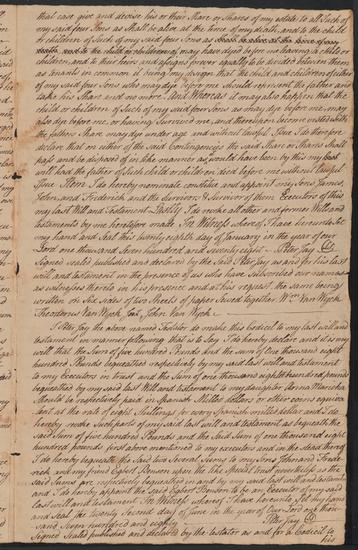 that case give and devise his or their Share or Shares of my estate to all Such of
my said four Sons as Shall be alive at the time of my death and to the child
or children of Such of my said four Sons as
death and to the child or children of may have dyed before me leaving a child or
children, and to their heirs and assigns forever equally to be divided between them
as tenants in common it being my design that the child and children of either
of my said four Sons who may dye before me should represent the father and
take his Share and no more And Whereas it may also happen that the
child or children of Such of my said four Sons as may dye before me, may
also dye before me, or having Survived me, and thereupon become vested with
the fathers Share may dye under age and without lawful Issue I do therefore
declare that on either of the said contingencies the said Share or Shares Shall
pass and be disposed of in like manner as would have been by this my last
will had the father of Such child or children died before me without lawful
Issue Item I do hereby nominate constitute and appoint my Sons James,
John, and Frederick and the Survivors & Survivor of them Executors of this
my last Will and Testament Lastly I do revoke all other and former Wills and
testaments by me heretofore made In Witness whereof I have hereunto Set
my hand and Seal this twenty eighth day of January in the year of our
Lord one thousand Seven hundred and seventy eight Peter Jay
Signed sealed published and declared by the Said Peter Jay as and for his last
will and testament in the presence of us who have subscribed our names
as witnesses thereto in his presence and at his request the same being
written on Six sides of two Sheets of paper Sewed together Wm Van Wyck
Theodorus Van Wyck John Van Wyck
I Peter Jay the above named Testator do make this Codicil to my last will and
testament in manner following that is to Say I do hereby declare and it is my
will that the Sum of five hundred Pounds and the sum of One thousand eight
hundred Pounds bequeathed respectively by my said last will and testament
to my Executors in trust and the Sum of one thousand eight hundred pounds
bequeathed by my said last Will and testament to my daughter Anna Maricka
Should be respectively paid in Spanish Milled dollars or other coins equiva
lent at the rate of eight Shillings for every Spanish milled dollar and I do
hereby revoke Such parts of my said last will and testament as bequeath the
said Sum of five hundred Pounds and the said Sum of one thousand eight
hundred pounds first above mentioned to my executors and in the Stead thereof
I do hereby bequeath the said two several Sums to my Sons John and Frede
rick and my friend Egbert Benson upon the like Special trust nevertheless as the
said Sums are respectively bequeathed in and by my said last will and testament
And I do hereby appoint the said Egbert Benson to be an Executor of my said
last will and testament In Witness whereof I have hereunto Set my hand
and Seal the twenty Second day of June in the year of Our Lord one thou
sand Seven hundred and eighty Peter Jay
Signed Sealed published and declared by the testator as and for a codicil to
his